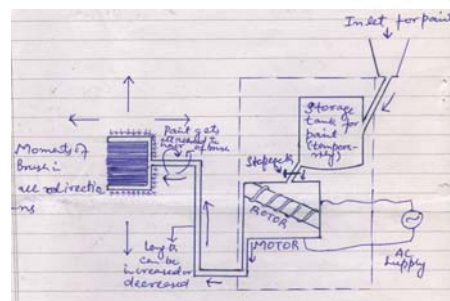 Inlet for paint
Storage
tank for
paint
(tempora-
rily)
Stopcock
Paint gets
attached to
hair of brush
Moments of
Brush in
all directio
-ns
ROTOR
MOTOR
AC
Supply
length
can be
increased or
decreased